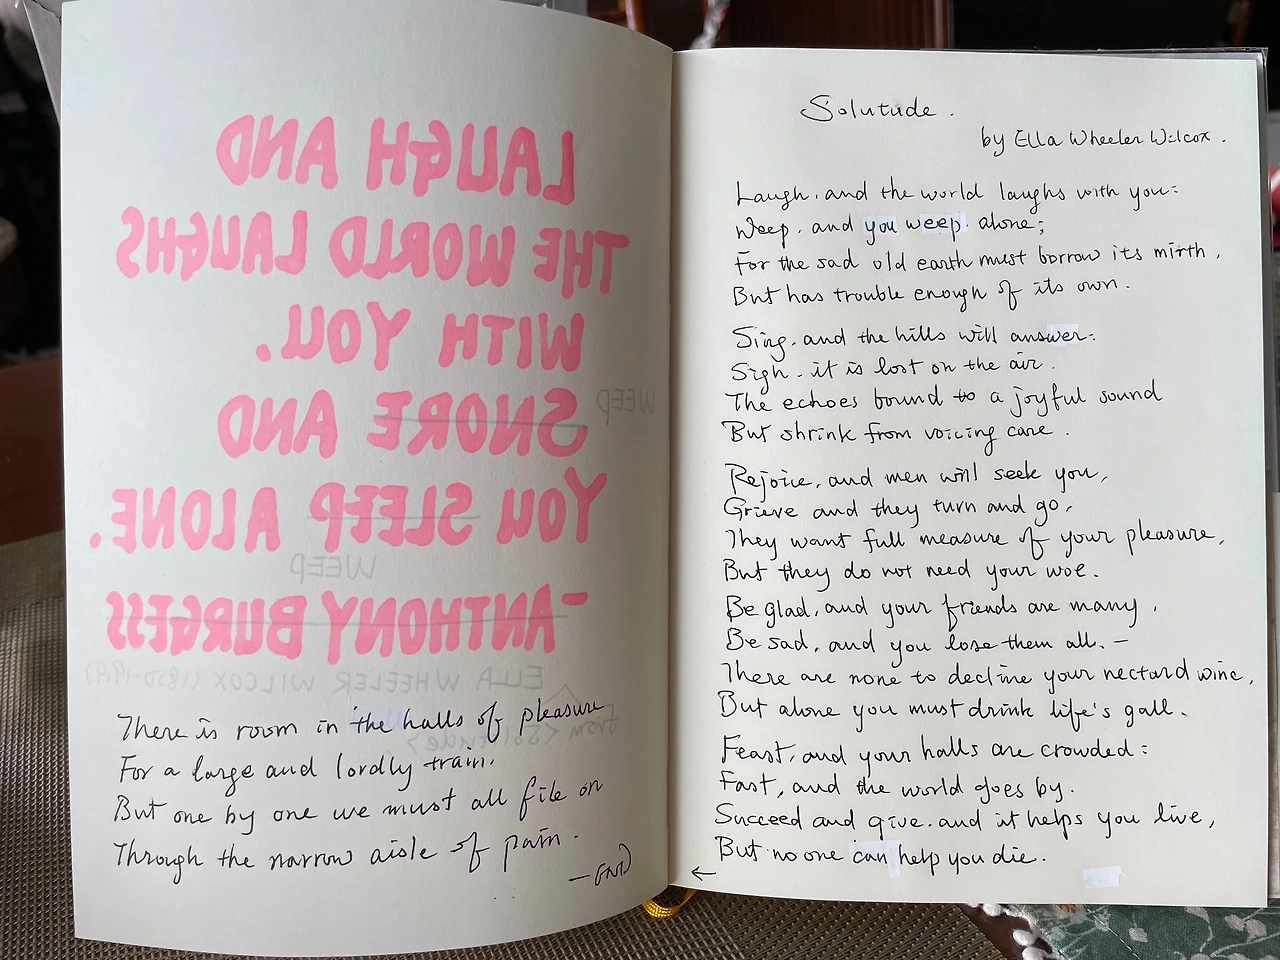 LAUGH AND
THE WORLD LAUGHS
WITH YOU.
WEEP
SNORE AND
YOU SLEEP ALONE.
WEEP
-ANTHONY BURGESS
ELLA WHEELER WILCOX (1850-1919)
from <Solitude>
There is room in the halls of pleasure
For a large and lordly train.
But one by one we must all file on
Through the narrow aisle of pain.
— END
Solutude.
by Ella Wheeler Wilcox.
Laugh, and the world laughs with you:
Weep, and you weep alone;
For the sad old earth must borrow its mirth,
But has trouble enough of its own.
Sing, and the hills will answer:
Sigh, it is lost on the air.
The echoes bound to a joyful sound
But shrink from voicing care.
Rejoice, and men will seek you,
Grieve and they turn and go,
They want full measure of your pleasure,
But they do not need your woe.
Be glad, and your friends are many,
Be sad, and you lose them all. —
There are none to decline your nectard wine,
But alone you must drink life's gall.
Feast, and your halls are crowded:
Fast, and the world goes by.
Succeed and give, and it helps you live,
But no one can help you die.
←